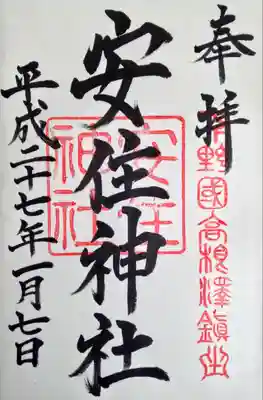 奉拝
野國高根澤鎮
安住神社
安住
神社
平成二十七年一月七日